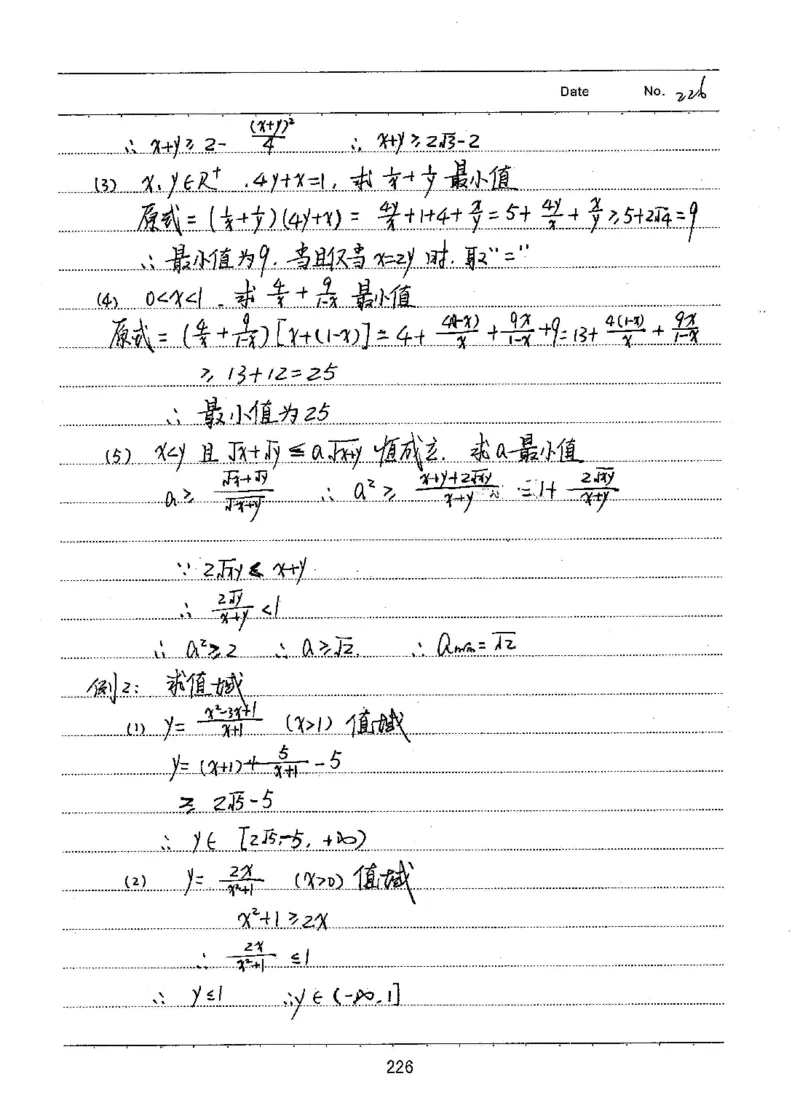 Date No. 226
∴ x+y ≥ 2- (x+y)²/4 ∴ x+y ≥ 2√3-2
(3) x、y∈R⁺ ,4y+x=1, 求 1/x + 1/y 最小值
原式 = (1/x + 1/y)(4y+x) = 4y/x +1+4+ x/y = 5+ 4y/x + x/y ≥ 5+2√4 = 9
∴ 最小值为9. 当且仅当 x=2y 时. 取"="
(4) 0<x<1. 求 4/x + 9/(1-x) 最小值
原式 = (4/x + 9/(1-x)) [x+(1-x)] = 4+ 4(1-x)/x + 9x/(1-x) +9 = 13+ 4(1-x)/x + 9x/(1-x)
≥ 13+12=25
∴ 最小值为25
(5) x<y 且 √x+√y ≤ a√(x+y) 恒成立. 求a最小值
a ≥ (√x+√y)/√(x+y) ∴ a² ≥ (x+y+2√xy)/(x+y) = 1+ 2√xy/(x+y)
∵ 2√xy ≤ x+y
∴ 2√y/(x+y) <1
∴ a²≥2 ∴ a≥√2 ∴ amin=√2
例2: 求值域
(1) y= (x²-3x+1)/(x+1) (x>1) 值域
y= (x+1)+ 5/(x+1) -5
≥ 2√5-5
∴ y∈ [2√5-5, +∞)
(2) y= 2x/(x²+1) (x>0) 值域
x²+1≥2x
∴ 2x/(x²+1) ≤1
∴ y≤1 ∴y∈(-∞,1]
226